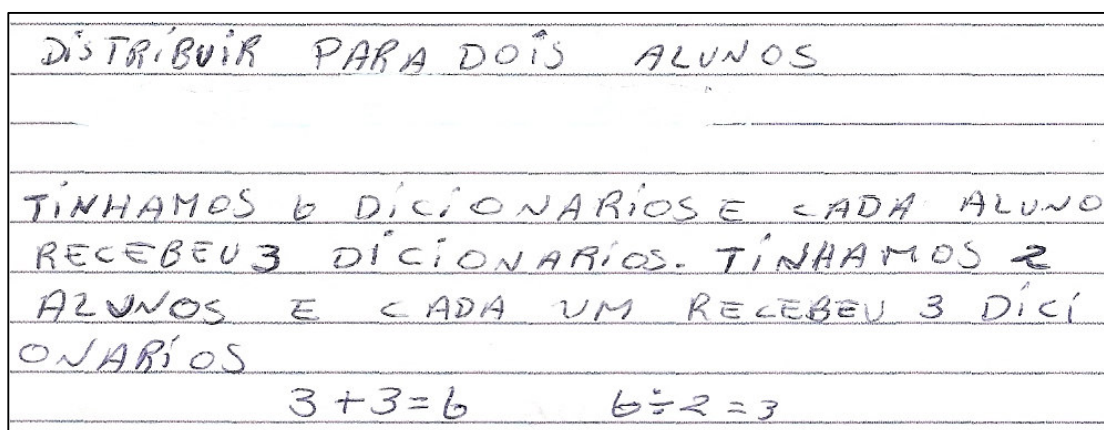 DISTRIBUIR PARA DOIS ALUNOS
TINHAMOS 6 DICIONARIOS E CADA ALUNO
RECEBEU 3 DICIONARIOS. TINHAMOS 2
ALUNOS E CADA UM RECEBEU 3 DICI
ONARIOS
3+3=6 6÷2=3